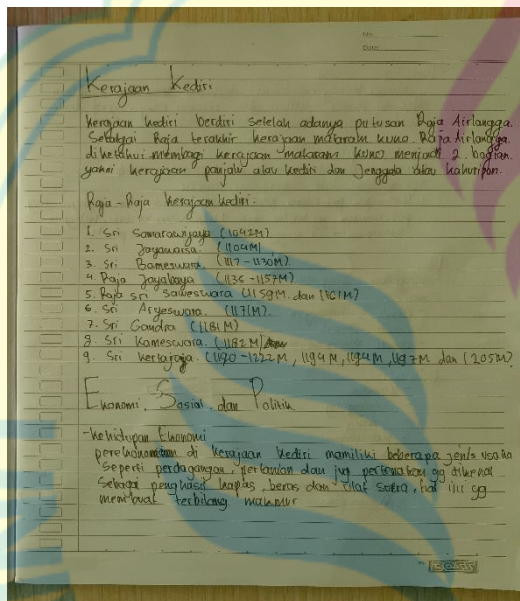 No.
Date.
Kerajaan Kediri
Kerajaan kediri berdiri setelah adanya putusan Raja Airlangga.
Sebagai Raja terakhir kerajaan mataram kuno. Raja Airlangga.
diketahui membagi kerajaan mataram kuno menjadi 2. bagian.
yakni kerajaan panjalu atau kediri dan Jenggala atau kahuripan.
Raja-Raja kerajaan kediri.
1. Sri Samarawijaya (1042M)
2. Sri Jayawarsa. (1104M)
3. Sri Bameswara. (1117-1130M).
4. Raja Jayabaya (1136-1157M)
5. Raja sri saweswara (1159M. dan 1161M)
6. Sri Aryeswara. (1171M).
7. Sri Gandra (1181M)
8. Sri Kameswara. (1182M)
9. Sri kertajaja. (1190-1222M, 1194M, 1194M, 1197M dan 1205M).
Ekonomi, Sosial, dan Politik
-kehidupan Ekonomi
perekonomian di kerajaan kediri mamiliki beberapa jenis usaha
seperti perdagangan, pertanian dan yg dikenal
sebagai penghasil kapas, beras dan ulat sutra, hal ini yg
membuat terbilang makmur